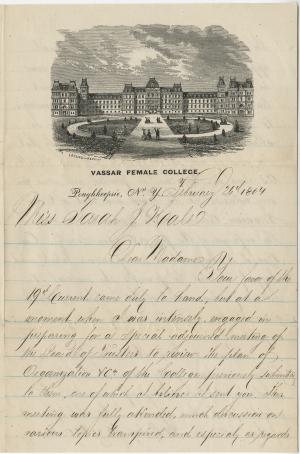 VASSAR FEMALE COLLEGE.
Poughkeepsie, N. Y. February 26th 1864
Miss Sarah J. Hale
Dear Madame
Your favor of the
19th Current came duly to hand, but at a
moment when I was intensely engaged in
preparing for a special adjourned meeting of
the Board of Trustees to review the plan of
Organization &c. of the College, previously submitted
to them, one of which I believe I sent you. This
meeting was fully attended, much discussion on
various topics transpired, and especially as regards